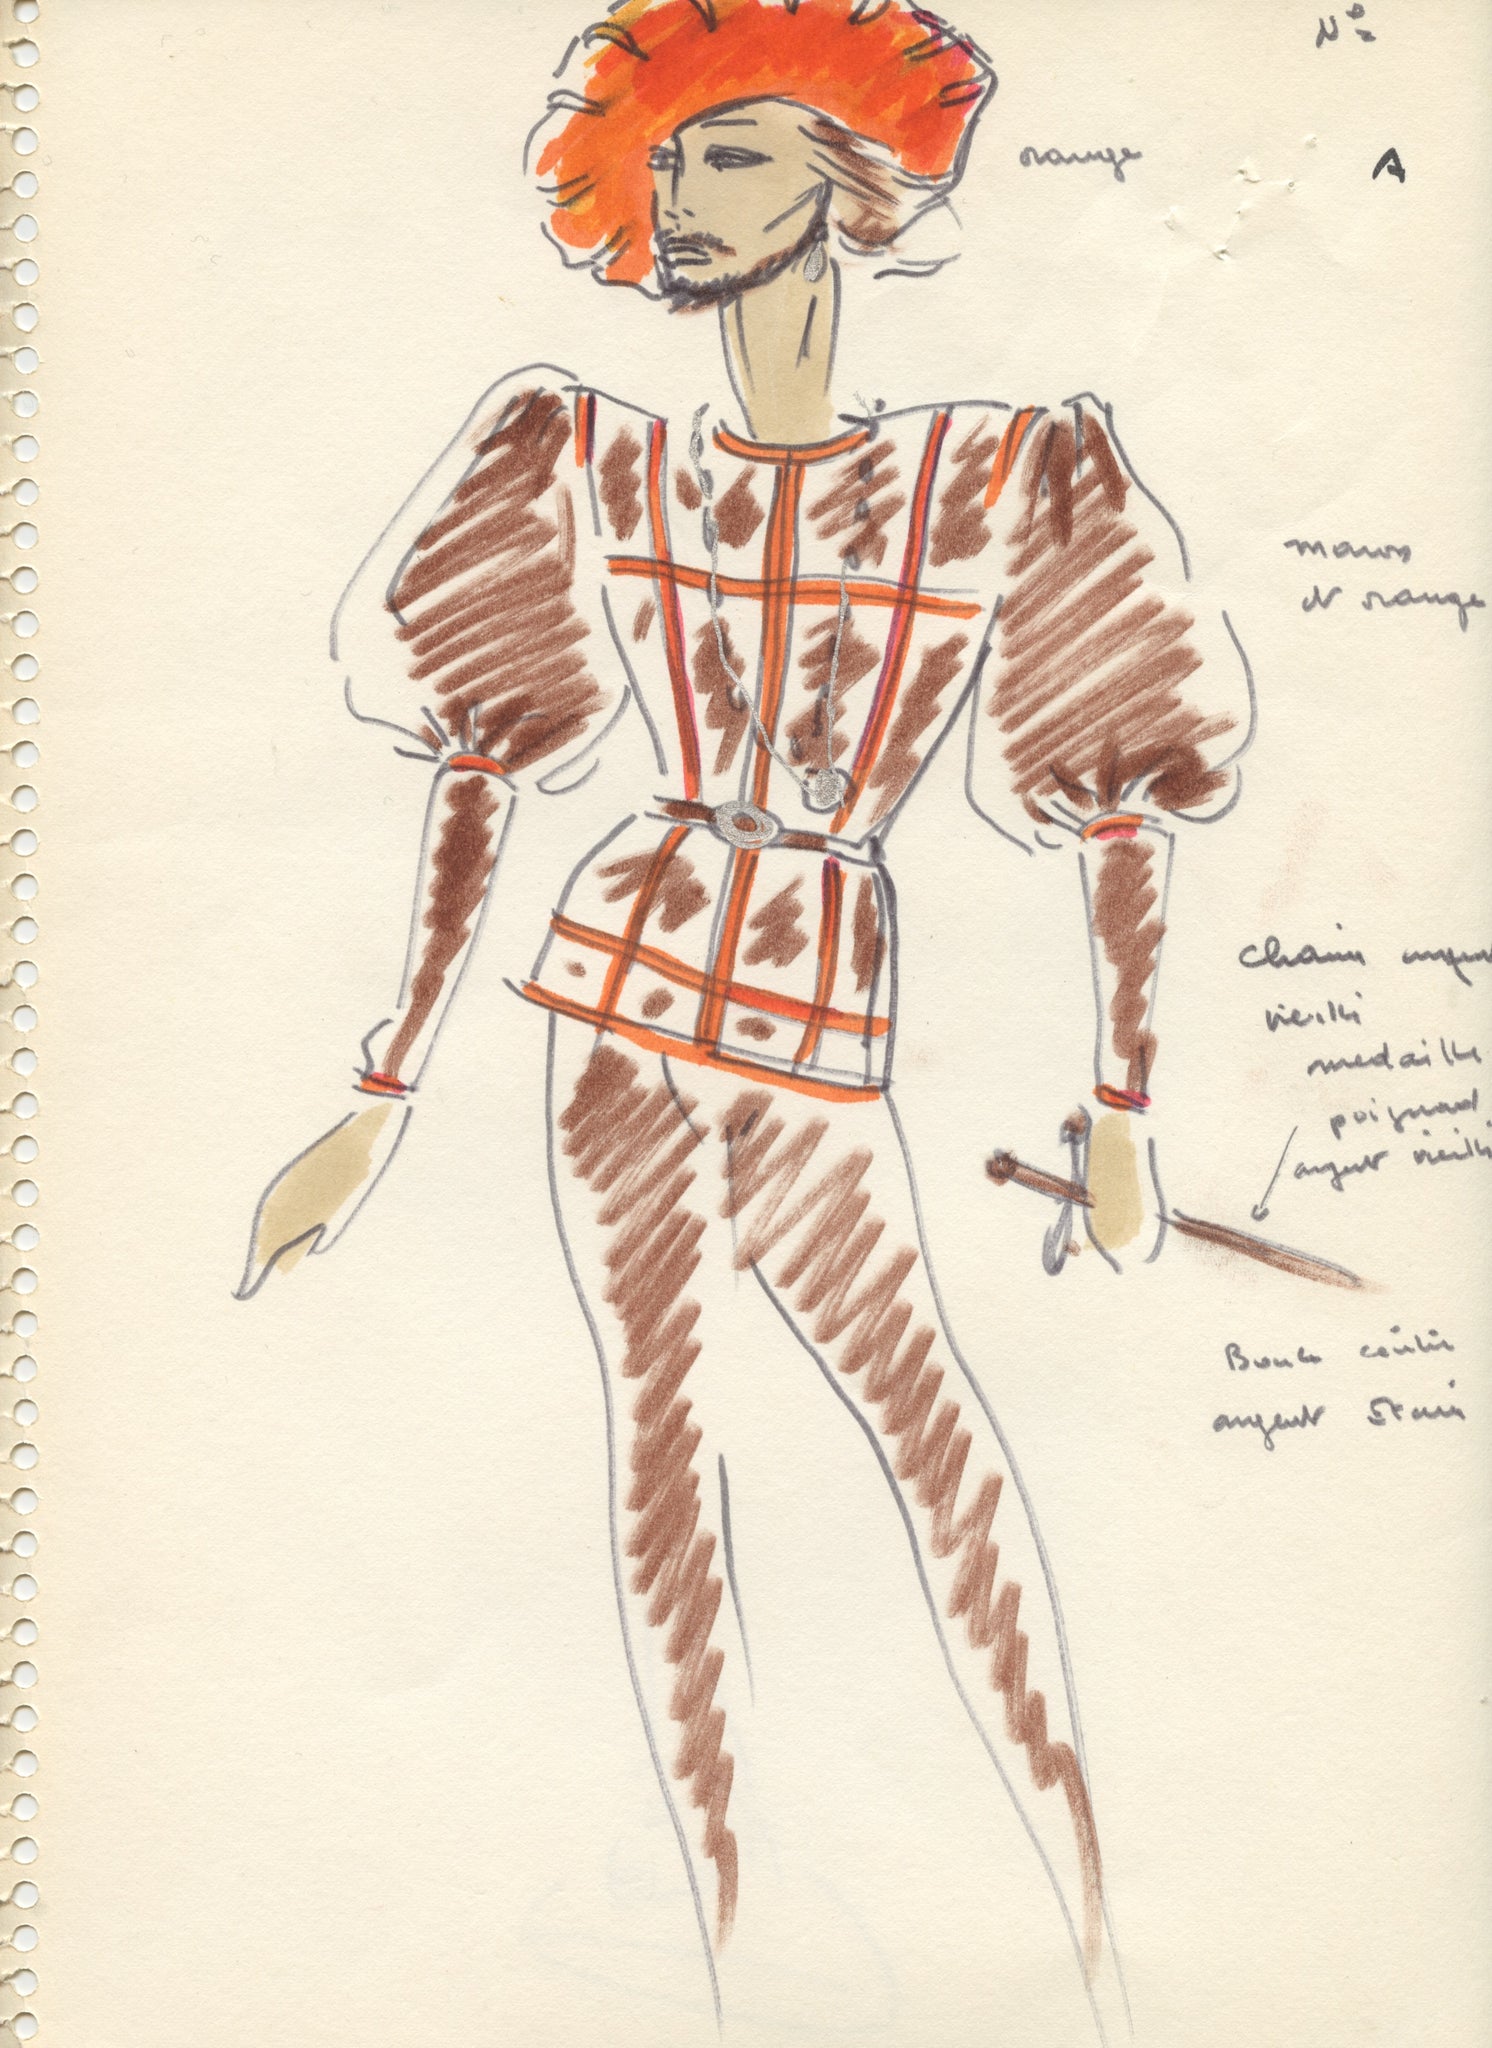 N°
orange
A
maron
et orange
chaine argent
vieilli
medaille
poignard
argent vieilli
Boucle
argent